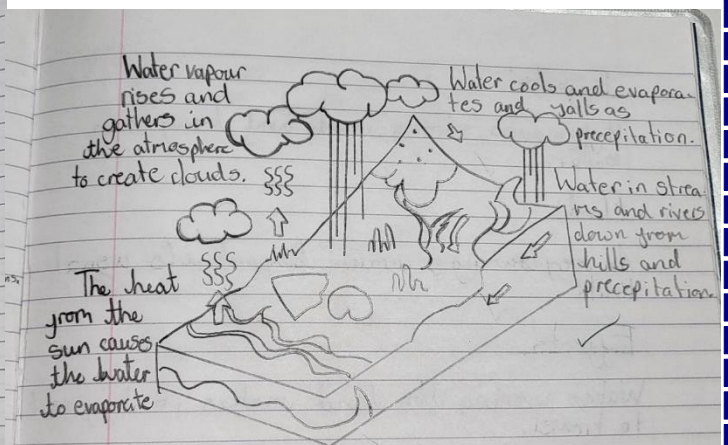 Water vapour
rises and
gathers in
the atmosphere
to create clouds.
Water cools and evapora-
tes and falls as
precepilation.
Water in strea-
ms and rivers
down from
hills and
precepitation.
The heat
from the
sun causes
the water
to evaporate